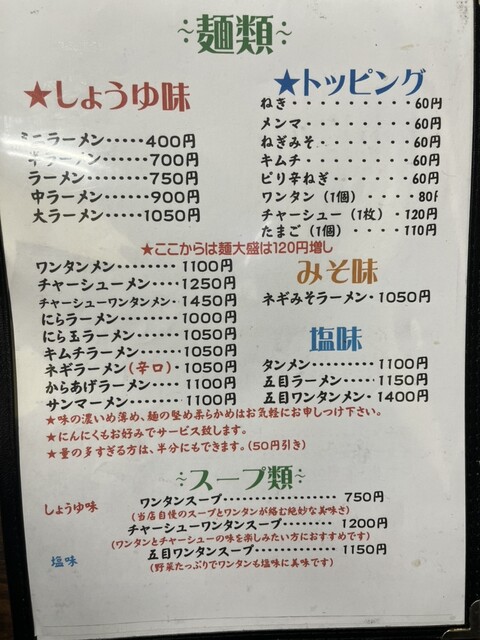 ~麺類~
★しょうゆ味
ミニラーメン・・・・・400円
半ラーメン・・・・・・700円
ラーメン・・・・・・・750円
中ラーメン・・・・・・900円
大ラーメン・・・・・1050円
★トッピング
ねぎ・・・・・・・・・60円
メンマ・・・・・・・・60円
ねぎみそ・・・・・・・60円
キムチ・・・・・・・・60円
ピリ辛ねぎ・・・・・・60円
ワンタン(1個)・・・・80円
チャーシュー(1枚)・120円
たまご(1個)・・・・110円
★ここからは麺大盛は120円増し
ワンタンメン・・・・・・・・1100円
チャーシューメン・・・・・1250円
チャーシューワンタンメン・1450円
にらラーメン・・・・・・・・1000円
にら玉ラーメン・・・・・・1050円
キムチラーメン・・・・・・1050円
ネギラーメン(辛口)・1050円
からあげラーメン・・・・・1100円
サンマーメン・・・・・・・・1100円
みそ味
ネギみそラーメン・1050円
塩味
タンメン・・・・・・・・・・1100円
五目ラーメン・・・・・・1150円
五目ワンタンメン・・1400円
★味の濃いめ薄め、麺の堅め柔らかめはお気軽にお申しつけ下さい。
★にんにくもお好みでサービス致します。
★量の多すぎる方は、半分にもできます。(50円引き)
~スープ類~
しょうゆ味
ワンタンスープ・・・・・・・・・・・・・・750円
(当店自慢のスープとワンタンが絡む絶妙な美味さ)
チャーシューワンタンスープ・・・・1200円
(ワンタンとチャーシューの味を楽しみたい方におすすめです)
塩味
五目ワンタンスープ・・・・・・・・・・1150円
(野菜たっぷりでワンタンも塩味に美味です)